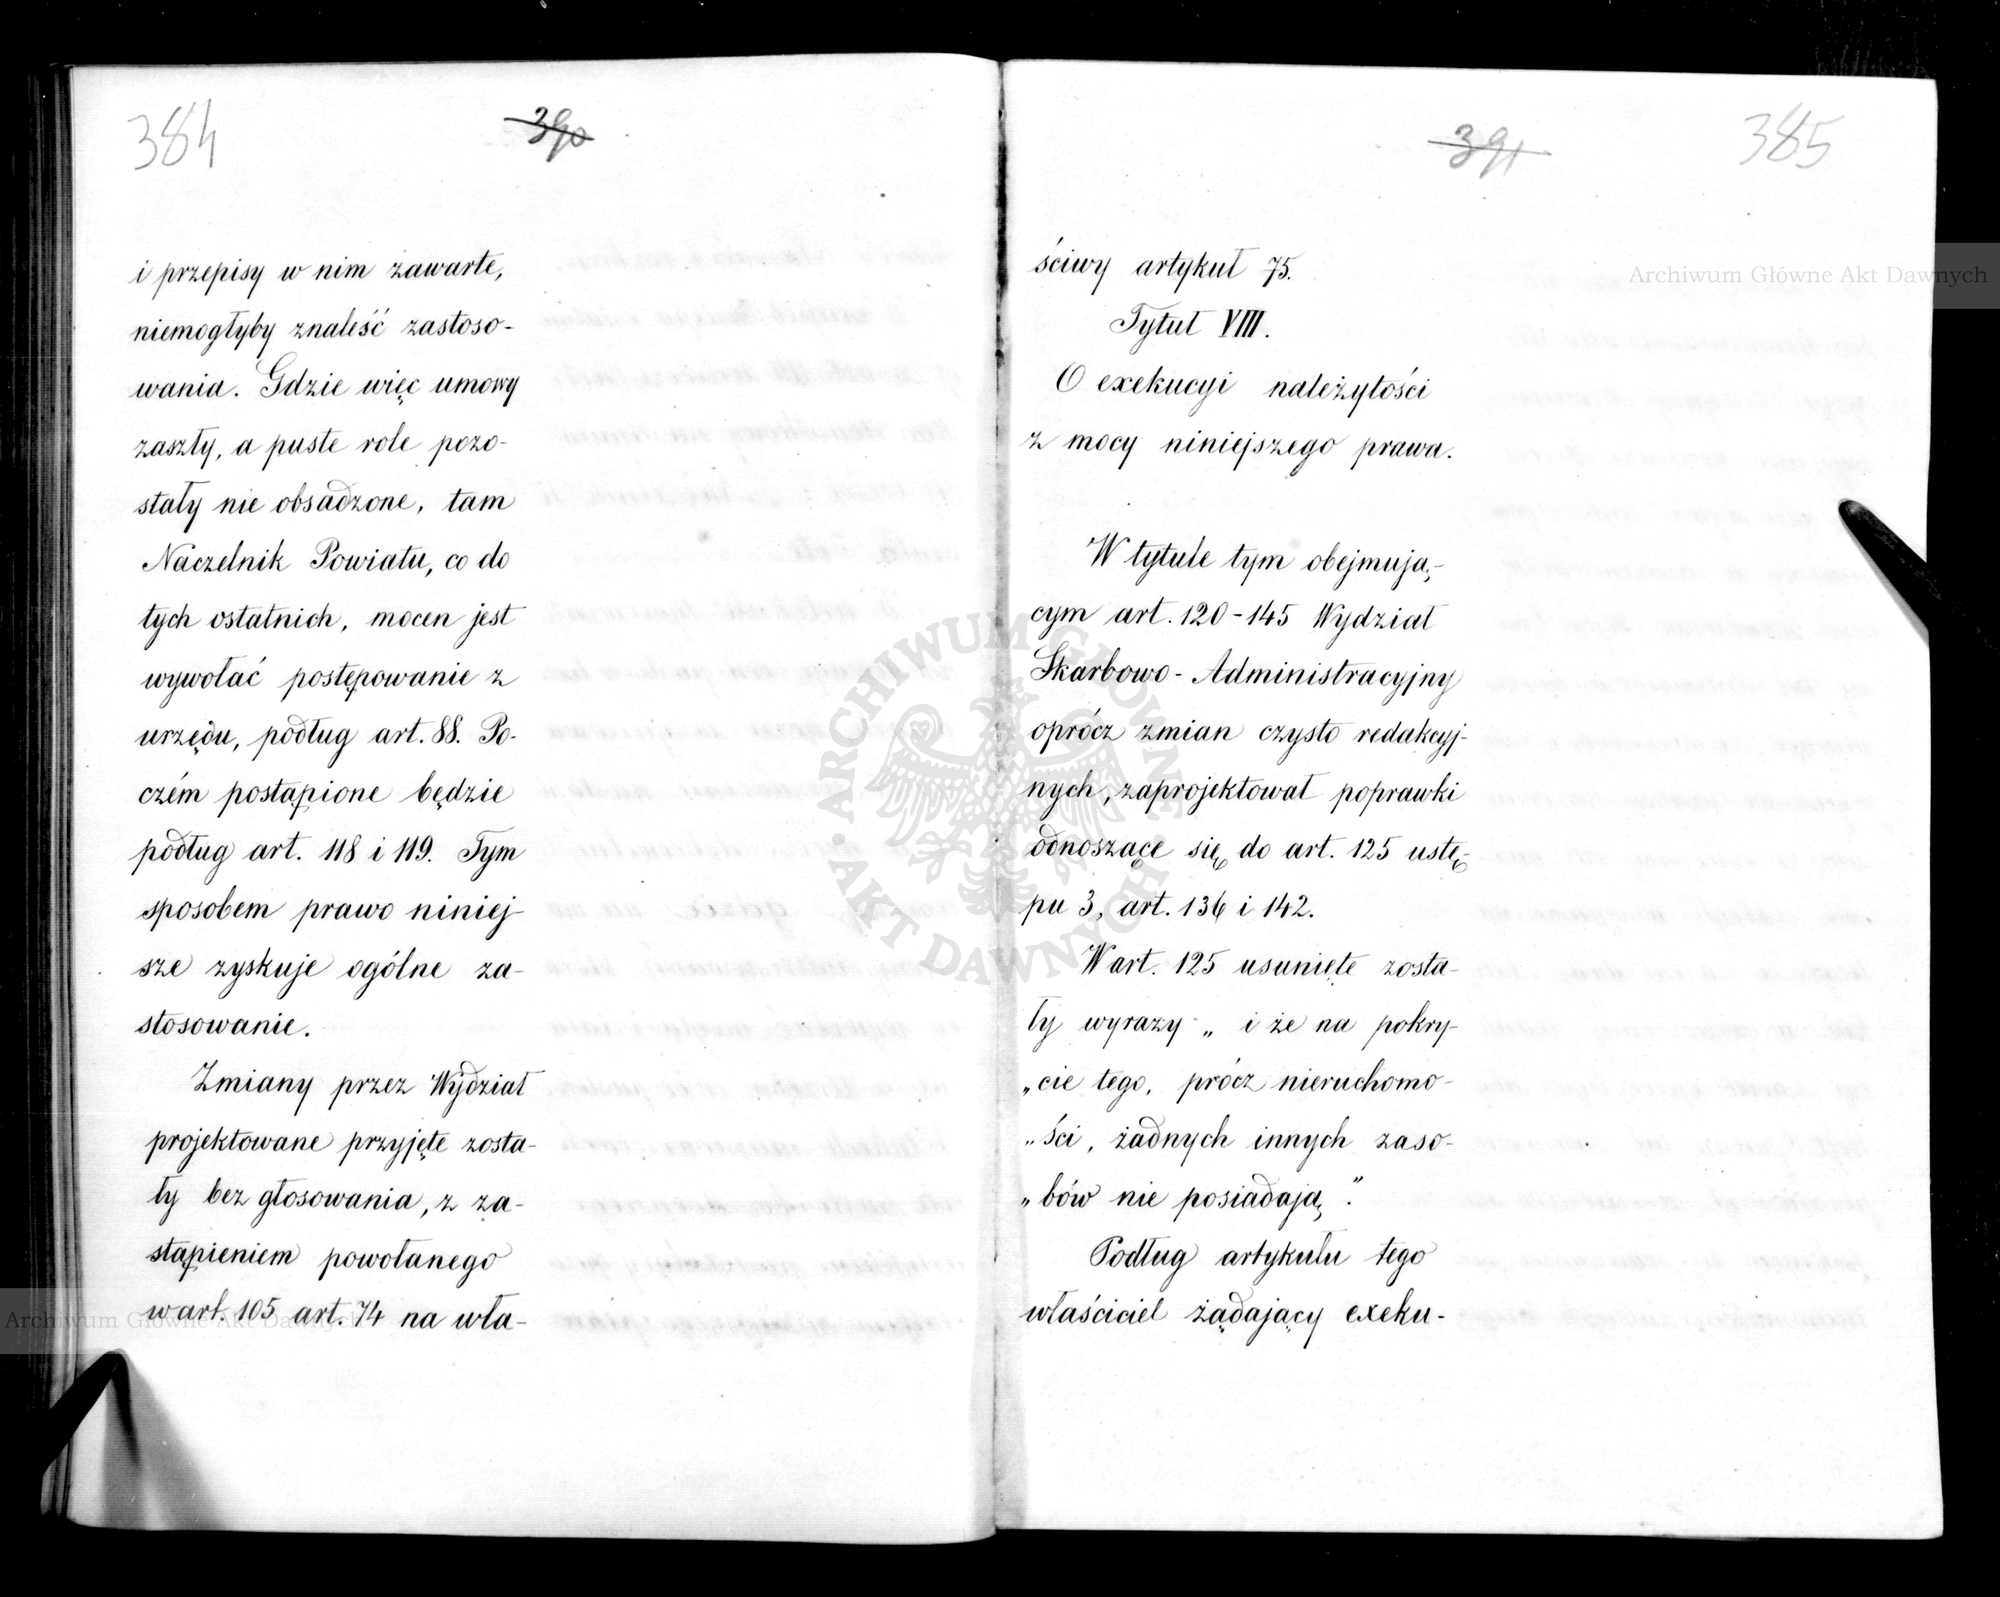 384
390
i przepisy w nim zawarte,
niemogłyby znaleść zastoso-
wania. Gdzie więc umowy
zaszły, a puste role pozo-
stały nie obsadzone, tam
Naczelnik Powiatu, co do
tych ostatnich, mocen jest
wywołać postępowanie z
urzędu, podług art. 88. Po-
czém postąpione będzie
podług art. 118 i 119. Tym
sposobem prawo niniej-
sze zyskuje ogólne za-
stosowanie.
Zmiany przez Wydział
projektowane przyjęte zosta-
ły bez głosowania, z za-
stąpieniem powołanego
w art. 105 art. 74 na wła-
Archiwum Główne Akt Dawnych
391
385
ściwy artykuł 75.
Archiwum Główne Akt Dawnych
Tytuł VIII.
O exekucyi należytości
z mocy niniejszego prawa.
W tytule tym obejmują-
cym art. 120-145 Wydział
Skarbowo-Administracyjny
oprócz zmian czysto redakcyj-
nych, zaprojektował poprawki
odnoszące się do art. 125 ustę-
pu 3, art. 136 i 142.
W art. 125 usunięte zosta-
ły wyrazy „ i że na pokry-
„cie tego, prócz nieruchomo-
„ści, żadnych innych zaso-
„bów nie posiadają".
Podług artykułu tego
właściciel żądający exeku-
ARCHIWUM GŁÓWNE AKT DAWNYCH